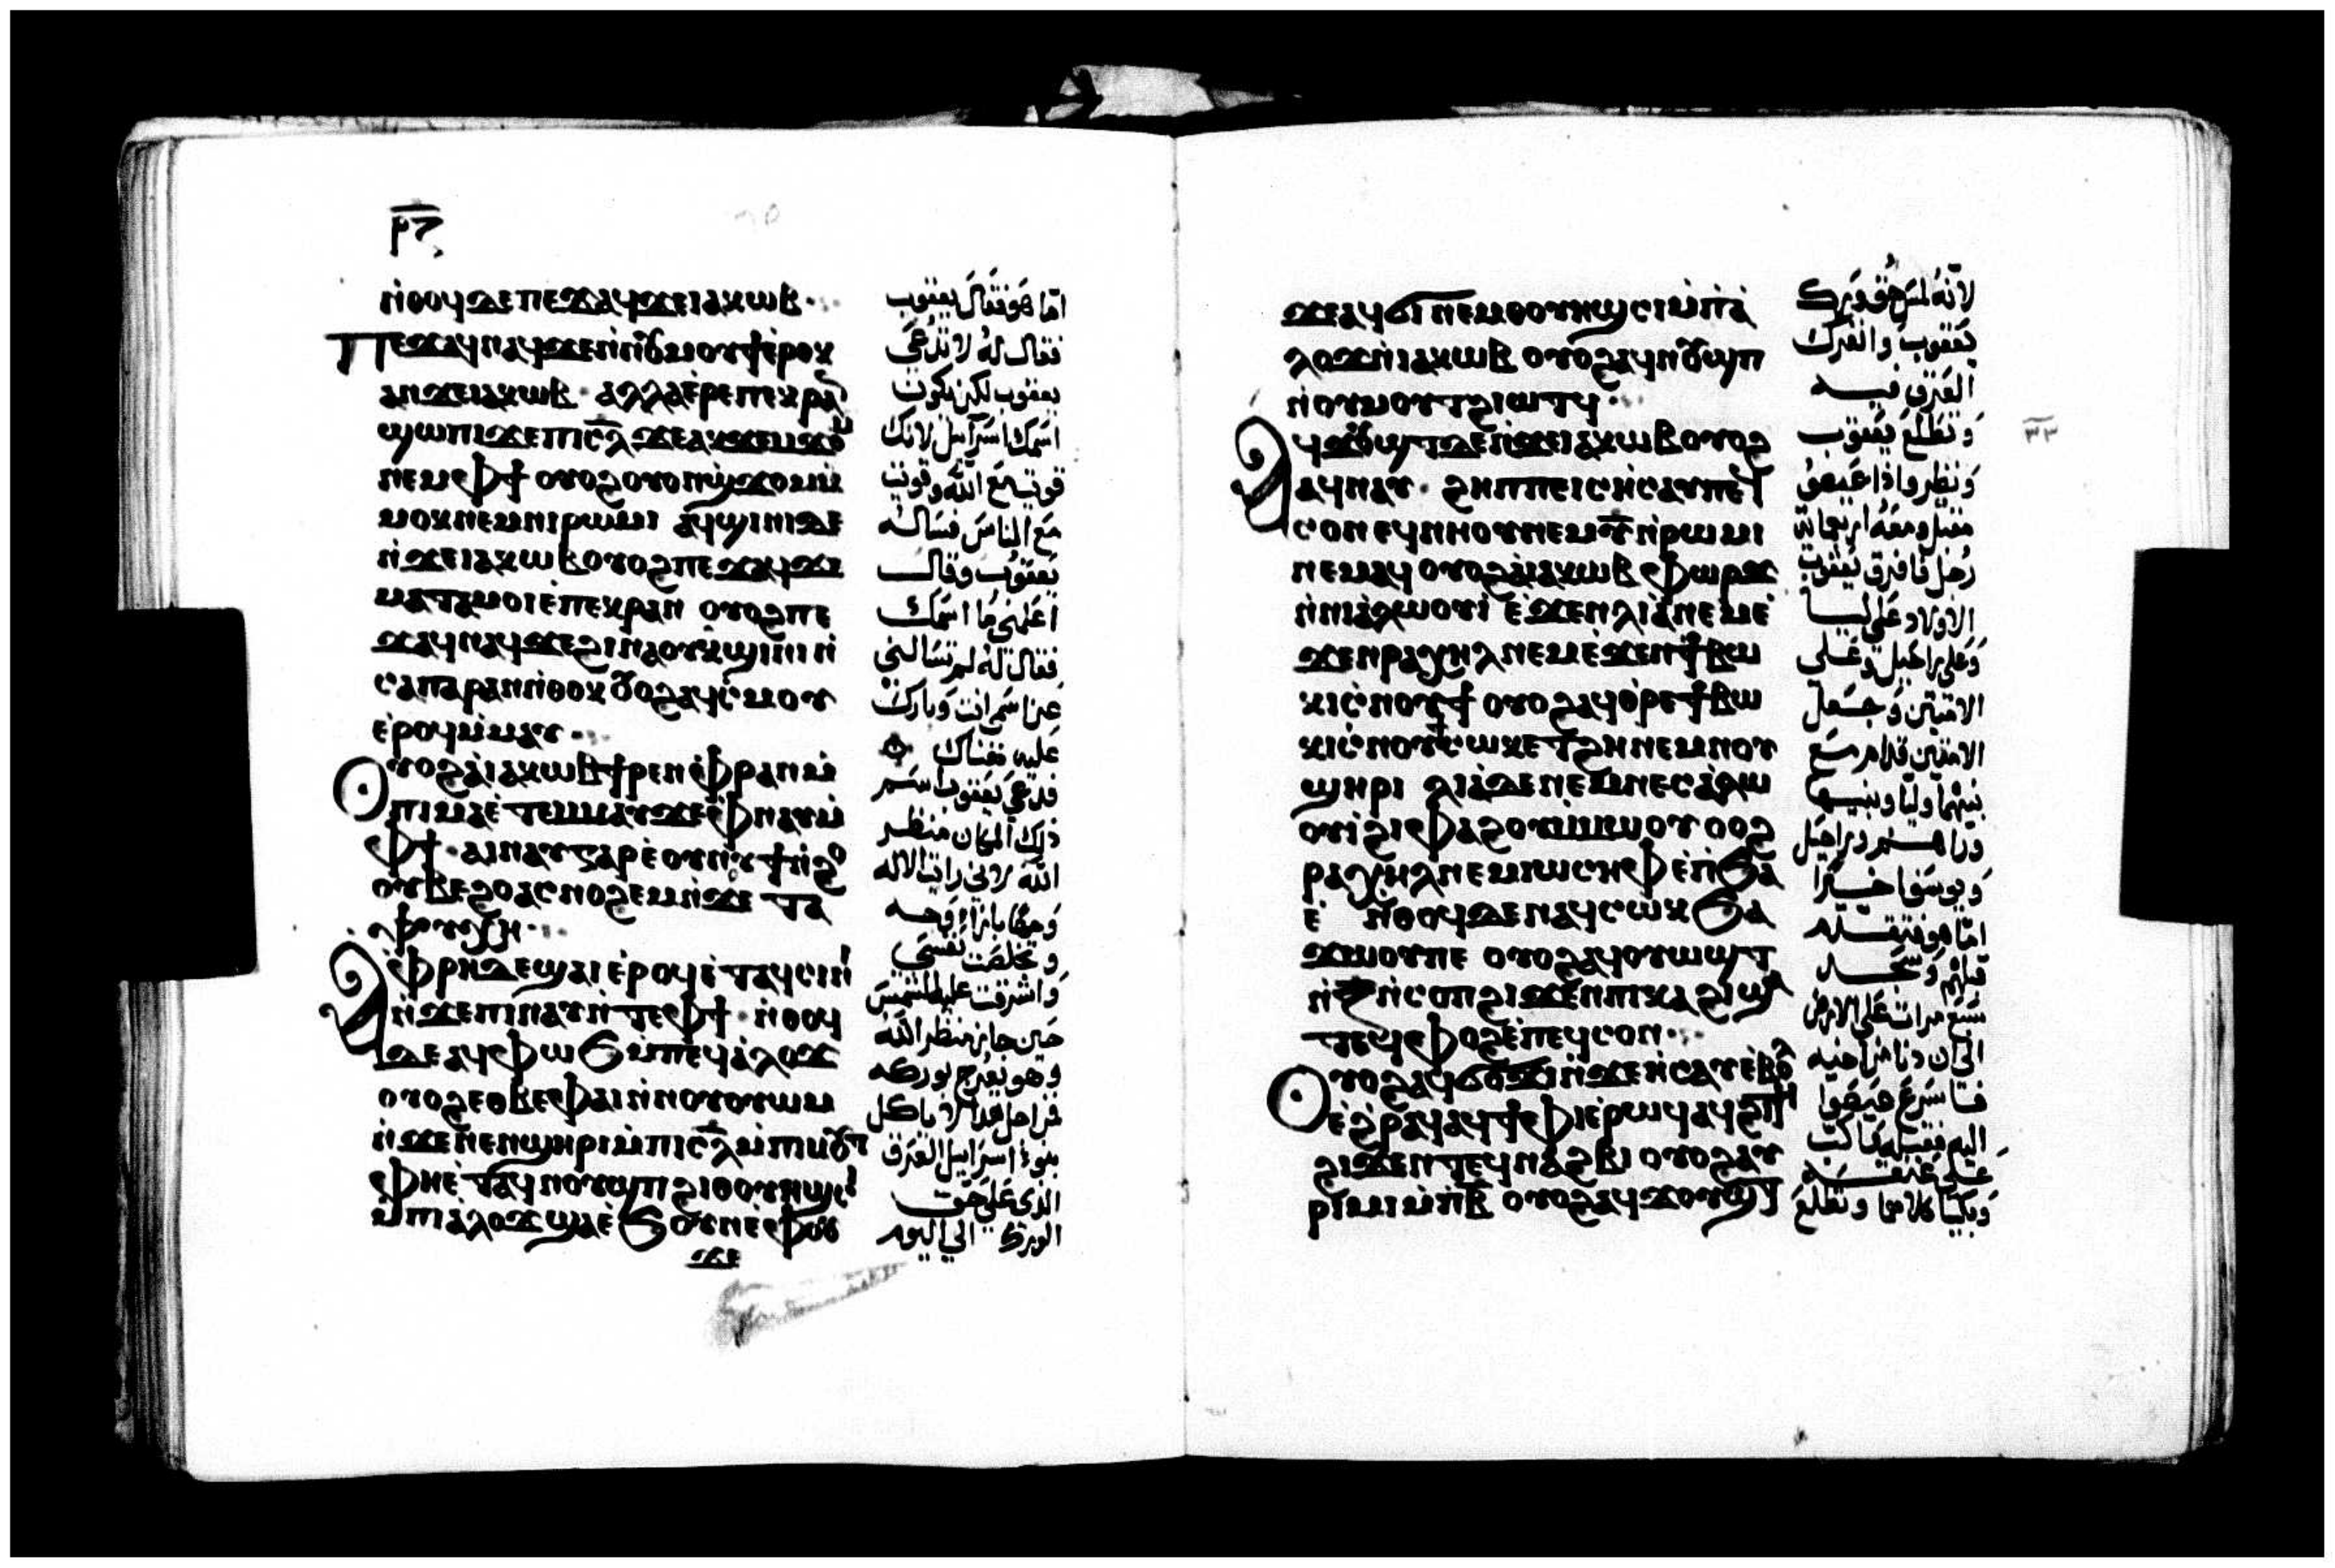 ⲣ̅ⲕ̅
ⲛ̀ⲑⲟϥ ⲇⲉ ⲡⲉϫⲁϥ ϫⲉ ⲓⲁⲕⲱⲃ
Ⲡⲉϫⲁϥ ⲛⲁϥ ϫⲉ ⲛ̀ⲛⲟⲩⲙⲟⲩϯ ⲉ̀ⲣⲟⲕ
ⲁⲛ ϫⲉ ⲓⲁⲕⲱⲃ ⲁⲗⲗⲁ ⲉ̀ⲣⲉ ⲡⲉⲕⲣⲁⲛ
ϣⲱⲡⲓ ϫⲉ ⲡⲓⲥ̅ⲗ̅ ϫⲉ ⲁⲕϫⲉⲙϫⲟⲙ
ⲛⲉⲙ ⲫϯ ⲟⲩⲟϩ ⲟⲩⲟⲛϣϫⲟⲙ
ⲙ̀ⲙⲟⲕ ⲛⲉⲙ ⲛⲓⲣⲱⲙⲓ ⲁϥϣⲓⲛⲓ ⲇⲉ
ⲛ̀ϫⲉ ⲓⲁⲕⲱⲃ ⲟⲩⲟϩ ⲡⲉϫⲁϥ ϫⲉ
ⲙⲁⲧⲁⲙⲟⲓ ⲉ̀ⲡⲉⲕⲣⲁⲛ ⲟⲩⲟϩ ⲡⲉ
ϫⲁϥ ⲛⲁϥ ϫⲉ ϩⲓⲛⲁ ⲟⲩ ⲕ̀ϣⲓⲛⲓ ⲛ̀
ⲥⲁ ⲡⲁⲣⲁⲛ ⲛ̀ⲑⲟⲕ ⲟⲩⲟϩ ⲁϥⲥ̀ⲙⲟⲩ
ⲉ̀ⲣⲟϥ ⲙ̀ⲙⲁⲩ
Ⲟⲩⲟϩ ⲁ̀ ⲓⲁⲕⲱⲃ ϯⲣⲉⲛ ⲫⲣⲁⲛ ⲙ̀
ⲡⲓⲙⲁ ⲉ̀ⲧⲉⲙⲙⲁⲩ ϫⲉ ⲫⲛⲁⲩ ⲙ̀
ⲫϯ ⲁⲓⲛⲁⲩ ⲅⲁⲣ ⲉ̀ⲟⲩⲛⲟⲩϯ ⲛ̀ϩⲟ
ⲟⲩⲃⲉ ϩⲟ ⲁⲥⲛⲟϩⲉⲙ ⲛ̀ϫⲉ ⲧⲁ
ⲯⲩⲭⲏ
Ⲁ̀ ⲫⲣⲏ ⲇⲉ ϣⲁⲓ ⲉ̀ⲣⲟϥ ⲉ̀ⲧⲁϥⲥⲓⲛⲓ
ⲛ̀ϫⲉ ⲡⲓⲛⲁⲩ ⲛ̀ⲧⲉ ⲫϯ ⲛ̀ⲑⲟϥ
ⲇⲉ ⲁϥⲫⲱϭ ⲙ̀ⲡⲉϥⲁ̀ⲗⲟϫ
ⲟⲩⲟϩ ⲉⲑⲃⲉ ⲫⲁⲓ ⲛ̀ⲛⲟⲩⲟⲩⲱⲙ
ⲛ̀ϫⲉ ⲛⲉⲛϣⲏⲣⲓ ⲙ̀ⲡⲓⲥ̅ⲗ̅ ⲙ̀ⲡⲓⲙⲟⲩⲧ
ⲫⲏ ⲉ̀ⲧⲁϥⲛⲟⲩϣⲡ ϩⲓ ⲑⲟⲩⲏϣⲥⲓ
ⲙ̀ⲡⲓⲁ̀ⲗⲟϫ ϣⲁ ⲉ̀ϧⲟⲩⲛ ⲉ̀ⲫⲟⲟⲩ
ϫⲉ
اما هو فقال يعقوب
فقال له لا تدعى
يعقوب لكن يكون
اسمك اسرائيل لانك
قويت مع الله وقويت
مع الناس فساله
يعقوب وقال
اعلمنى ما اسمك
فقال له لم تسالنى
عن اسمى انت وبارك
عليه هناك
فدعى يعقوب اسم
ذلك المكان منظر
الله لانى رايت الاله
وجها بازاء وجه
وتخلصت نفسى
واشرقت عليه الشمس
حين جاز منظر الله
وهو يعرج بوركه
من اجل هذا لا ياكل
بنو اسرائيل العرق
الذى على حق
الورك الى اليوم
ϫⲉ ⲁϥϭⲓ ⲛⲉⲙ ⲑⲟⲩⲏϣⲥⲓ ⲙ̀ⲡⲁ̀
ⲗⲟϫ ⲛ̀ⲓⲁⲕⲱⲃ ⲟⲩⲟϩ ⲁϥⲛⲟⲩϣⲡ
ⲛ̀ⲟⲩⲙⲟⲩⲧ ϩⲓⲱⲧϥ
Ⲁϥϫⲟⲩϣⲧ ⲇⲉ ⲛ̀ϫⲉ ⲓⲁⲕⲱⲃ ⲟⲩⲟϩ
ⲁϥⲛⲁⲩ ϩⲏⲡⲡⲉ ⲓⲥ ⲏ̀ⲥⲁⲩ ⲡⲉϥ
ⲥⲟⲛ ⲉϥⲛⲏⲟⲩ ⲛⲉⲙ ⲩ̅ ⲛ̀ⲣⲱⲙⲓ
ⲛⲉⲙⲁϥ ⲟⲩⲟϩ ⲁ̀ ⲓⲁⲕⲱⲃ ⲫⲱⲣϫ
ⲛ̀ⲛⲓⲁ̀ⲗⲱⲟⲩⲓ ⲉ̀ϫⲉⲛ ⲗⲓⲁ̀ ⲛⲉⲙ ⲉ̀
ϫⲉⲛ ⲣⲁⲭⲏⲗ ⲛⲉⲙ ⲉ̀ϫⲉⲛ ϯⲃⲱ
ⲕⲓ ⲥ̀ⲛⲟⲩϯ ⲟⲩⲟϩ ⲁϥⲑ̀ⲣⲉ ϯⲃⲱ
ⲕⲓ ⲥ̀ⲛⲟⲩϯ ⲥⲱⲕ ⲉⲧϩⲏ ⲛⲉⲙ ⲛⲟⲩ
ϣⲏⲣⲓ ⲗⲓⲁ̀ ⲇⲉ ⲛⲉⲙ ⲛⲉⲥⲁ̀ⲗⲱ
ⲟⲩⲓ̀ ϩⲓ ⲫⲁϩⲟⲩ ⲙ̀ⲙⲱⲟⲩ ⲟⲟϩ
ⲣⲁⲭⲏⲗ ⲛⲉⲙ ⲓⲱⲥⲏⲫ ⲉ̀ⲡ̀ϧⲁ̀
ⲉ̀ ⲛ̀ⲑⲟϥ ⲇⲉ ⲛⲁϥⲥⲱⲕ ϧⲁ
ϫⲱⲟⲩ ⲡⲉ ⲟⲩⲟϩ ⲁϥⲟⲩⲱϣⲧ
ⲛ̀ⲍ̅ ⲛ̀ⲥⲟⲡ ϩⲓϫⲉⲛ ⲡⲓⲕⲁϩⲓ ϣⲁ
ⲧⲉϥⲫⲟϩ ⲉ̀ⲡⲉϥⲥⲟⲛ
Ⲟⲩⲟϩ ⲁϥϭⲟϫⲓ ⲛ̀ϫⲉ ⲏ̀ⲥⲁⲩ ⲉ̀ⲃⲟⲗ
ⲉ̀ϩ̀ⲣⲁϥ ⲁϥϯⲫⲓ ⲉ̀ⲣⲱϥ ⲁϥϩⲓⲧϥ
ϩⲓϫⲉⲛ ⲧⲉϥⲛⲁϩⲃⲓ ⲟⲩⲟϩ ⲁⲩ
ⲣⲓⲙⲓ ⲙ̀ⲡⲃ̅ ⲟⲩⲟϩ ⲁϥϫⲟⲩϣⲧ
لانه لمس حق ورك
يعقوب وانفرك
العرق فيه
وتطلع يعقوب
ونظر واذا عيصو
مقبل ومعه اربعماية
رجل فافرق يعقوب
الاولاد على ليا
وعلى راحيل وعلى
الامتين وجعل
الامتين قدام مع
بنيهما وليا وبنيها
وراهم وراحيل
ويوسف اخيرا
اما هو فتقدم
قدامهم وسجد
سبع مرات على الارض
الى ان دنا من اخيه
فاسرع عيصو
اليه فقبله فاكب
على عنقه
وبكيا كلاهما وتطلع
٣٣